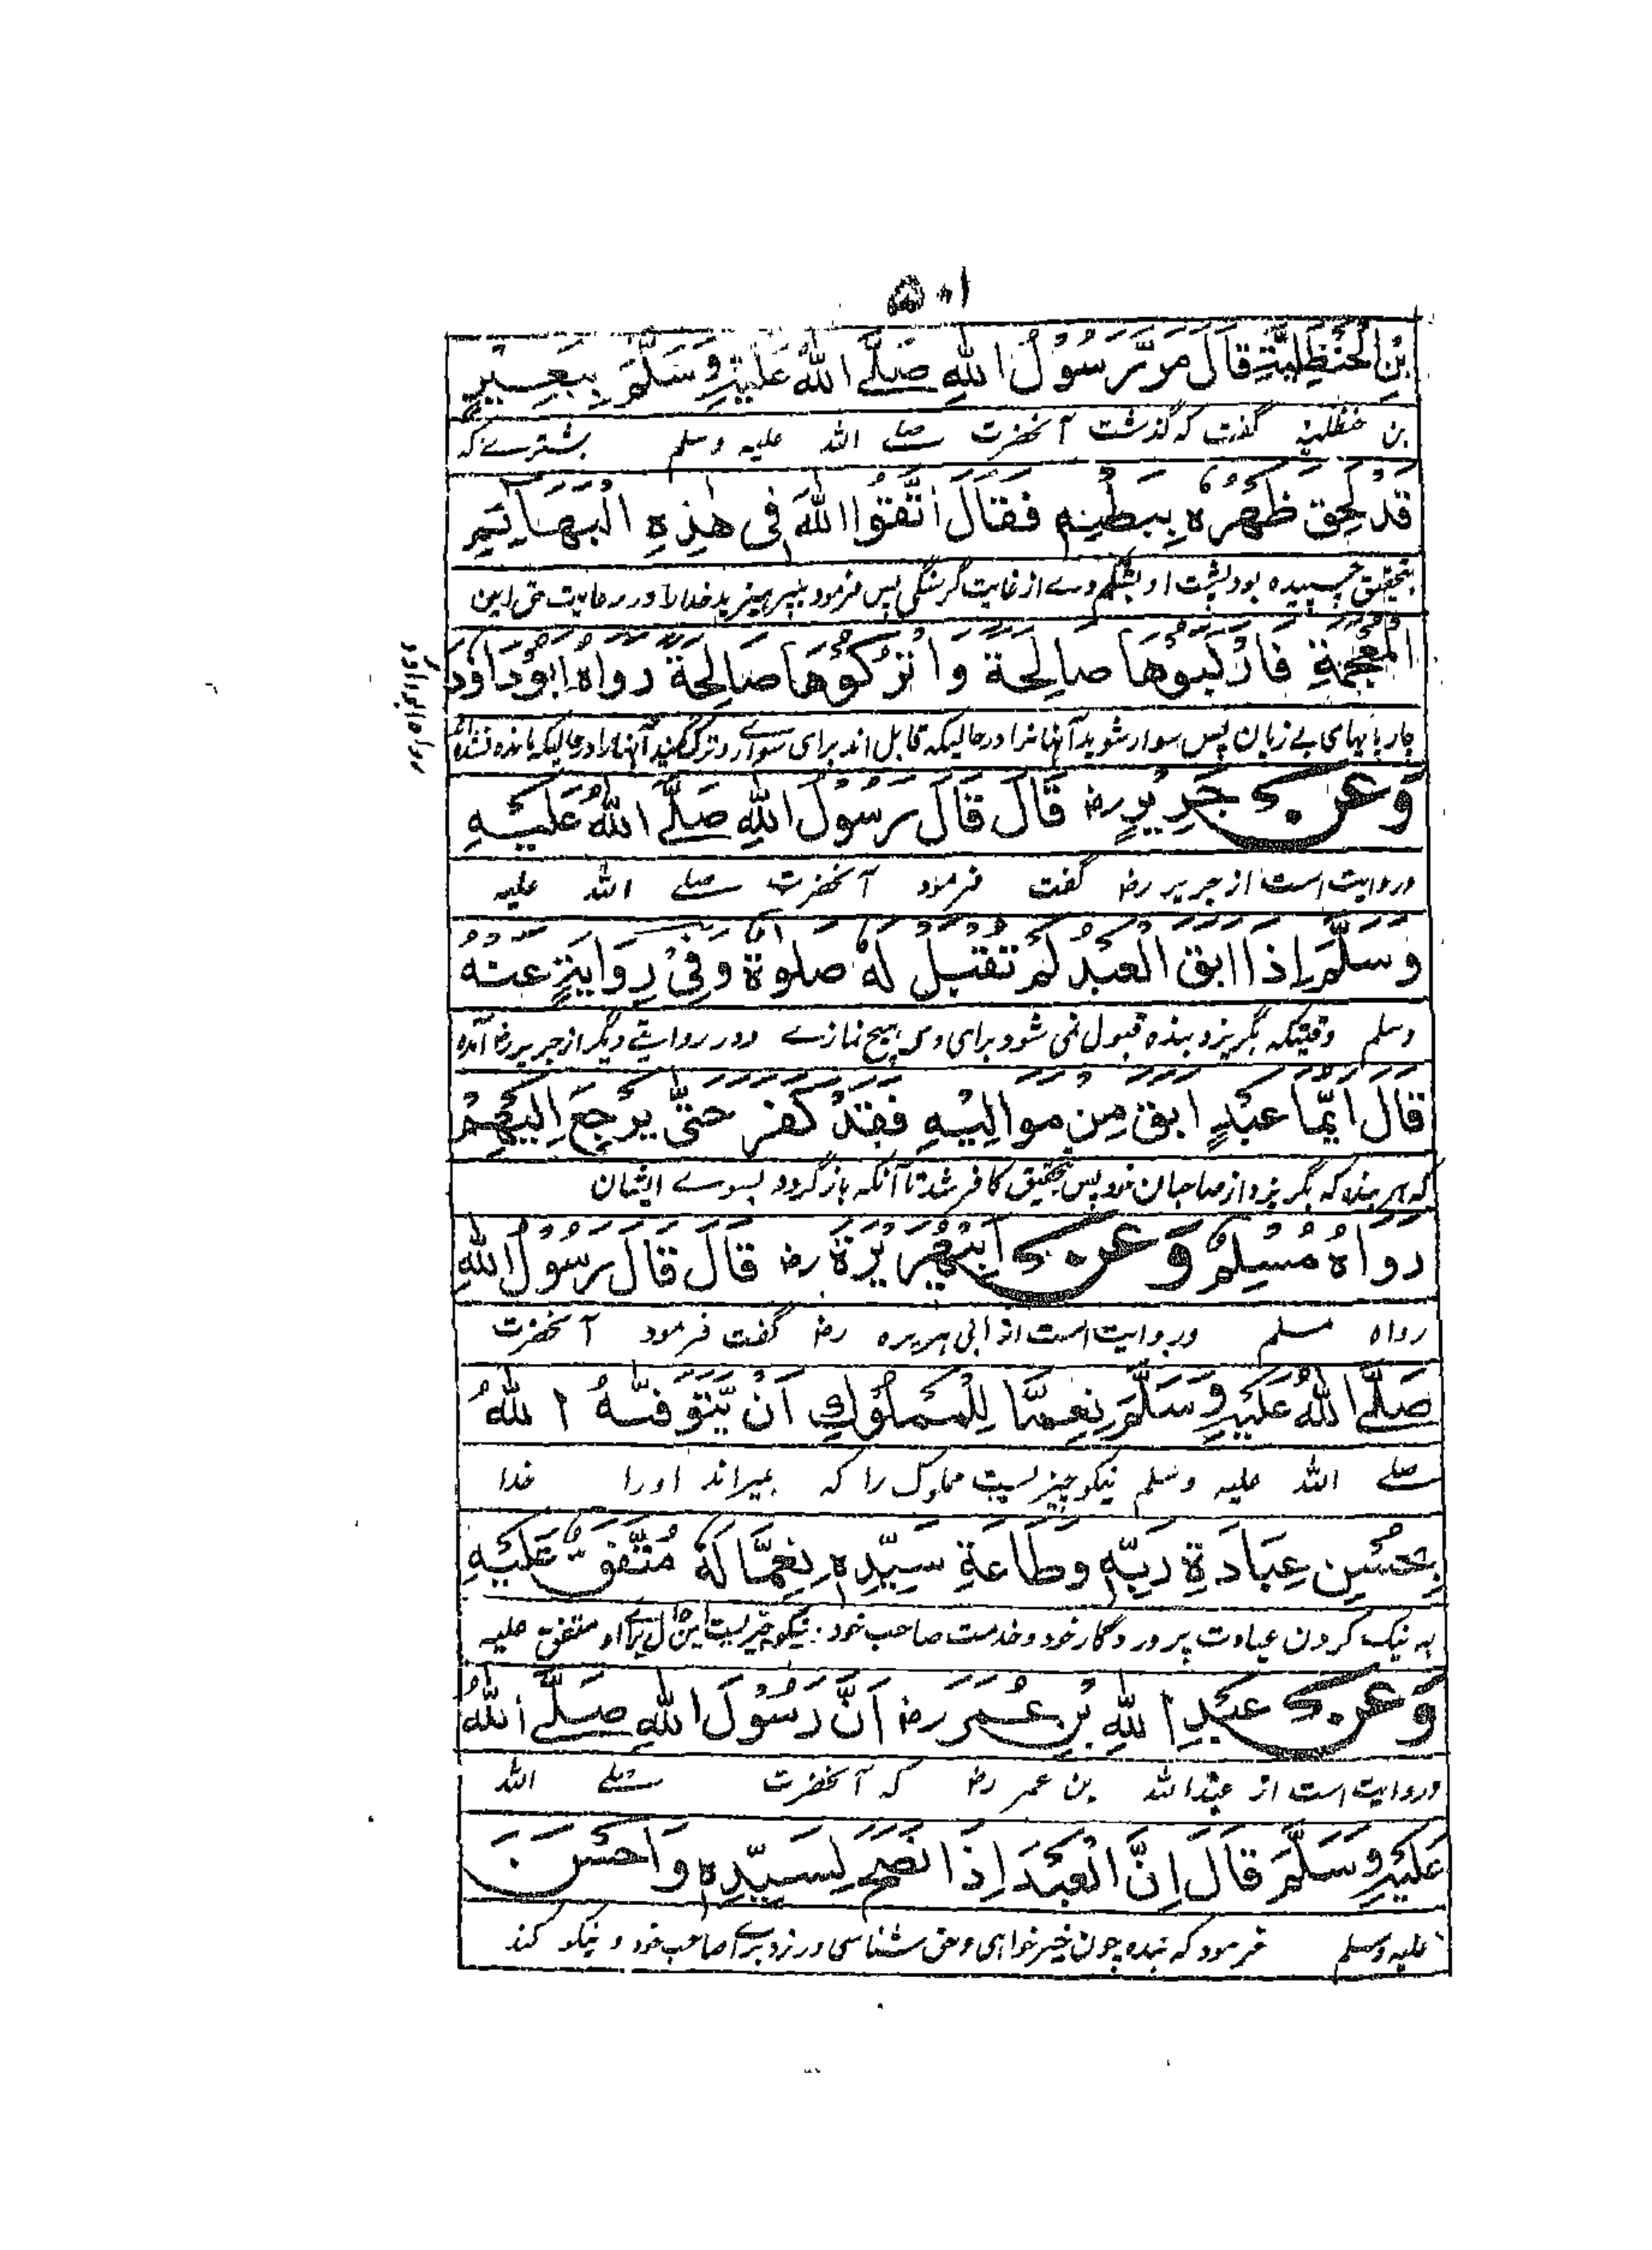 ۵۰۱
بْنِ الْحَنْظَلِيَّةِ قَالَ مَرَّ رَسُوْلُ اللهِ صَلَّے اللهُ عَلَيْهِ وَسَلَّمَ بِبَعِيْرٍ
بن حنظلیه گفت که گذشت آنحضرت صلے الله علیه وسلم بشترے که
قَدْ لَحِقَ ظَهْرُهٗ بِبَطْنِهٖ فَقَالَ اتَّقُوا اللهَ فِی هٰذِهِ الْبَهَائِمِ
بتحقیق چسپیده بود پشت او بشکم وے از غایت گرسنگی پس فرمود بپرهیزید خدا را در رعایت حق این
الْمُعْجَمَةِ فَارْكَبُوْهَا صَالِحَةً وَاتْرُكُوْهَا صَالِحَةً رَوَاهُ اَبُوْدَاوٗدَ
چارپایهای بے زبان پس سوار شوید آنها را درحالیکه قابل اند برای سواری و ترک کنید آنها را درحالیکه مانده نشده
رواه ابوداود
وَعَنْ جَرِيْرٍ رض قَالَ قَالَ رَسُوْلُ اللهِ صَلَّے اللهُ عَلَيْهِ
وروایت است از جریر رض گفت فرمود آنحضرت صلے الله علیه
وَسَلَّمَ اِذَا اَبَقَ الْعَبْدُ لَمْ تُقْبَلْ لَهٗ صَلٰوةٌ وَفِیْ رِوَايَةٍ عَنْهُ
وسلم وقتیکه بگریزد بنده قبول نمی شود برای وی هیچ نمازے ودر روایتے دیگر از جریر رض آمده
قَالَ اَيُّمَا عَبْدٍ اَبَقَ مِنْ مَوَالِيْهِ فَقَدْ كَفَرَ حَتّٰى يَرْجِعَ اِلَيْهِمْ
که هر بنده که بگریزد از صاحبان خود پس بتحقیق کافر شد تا آنکه بازگردد بسوے ایشان
رَوَاهُ مُسْلِمٌ وَعَنْ اَبِیْ هُرَيْرَةَ رض قَالَ قَالَ رَسُوْلُ اللهِ
رواه مسلم وروایت است از ابی هریره رض گفت فرمود آنحضرت
صَلَّے اللهُ عَلَيْهِ وَسَلَّمَ نِعِمَّا لِلْمَمْلُوْكِ اَنْ يَّتَوَفّٰهُ اللهُ
صلے الله علیه وسلم نیکو چیزیست مملوک را که بمیراند اورا خدا
بِحُسْنِ عِبَادَةِ رَبِّهٖ وَطَاعَةِ سَيِّدِهٖ نِعِمَّا لَهٗ مُتَّفَقٌ عَلَيْهِ
به نیک کردن عبادت پروردگار خود و خدمت صاحب خود نیکو چیزیست این حال برای او متفق علیه
وَعَنْ عَبْدِ اللهِ بْنِ عُمَرَ رض اَنَّ رَسُوْلَ اللهِ صَلَّے اللهُ
وروایت است از عبدالله بن عمر رض که آنحضرت صلے الله
عَلَيْهِ وَسَلَّمَ قَالَ اِنَّ الْعَبْدَ اِذَا نَصَحَ لِسَيِّدِهٖ وَاَحْسَنَ
علیه وسلم فرمود که بنده چون خیرخواهی وحق شناسی ورزد برای صاحب خود و نیکو کند